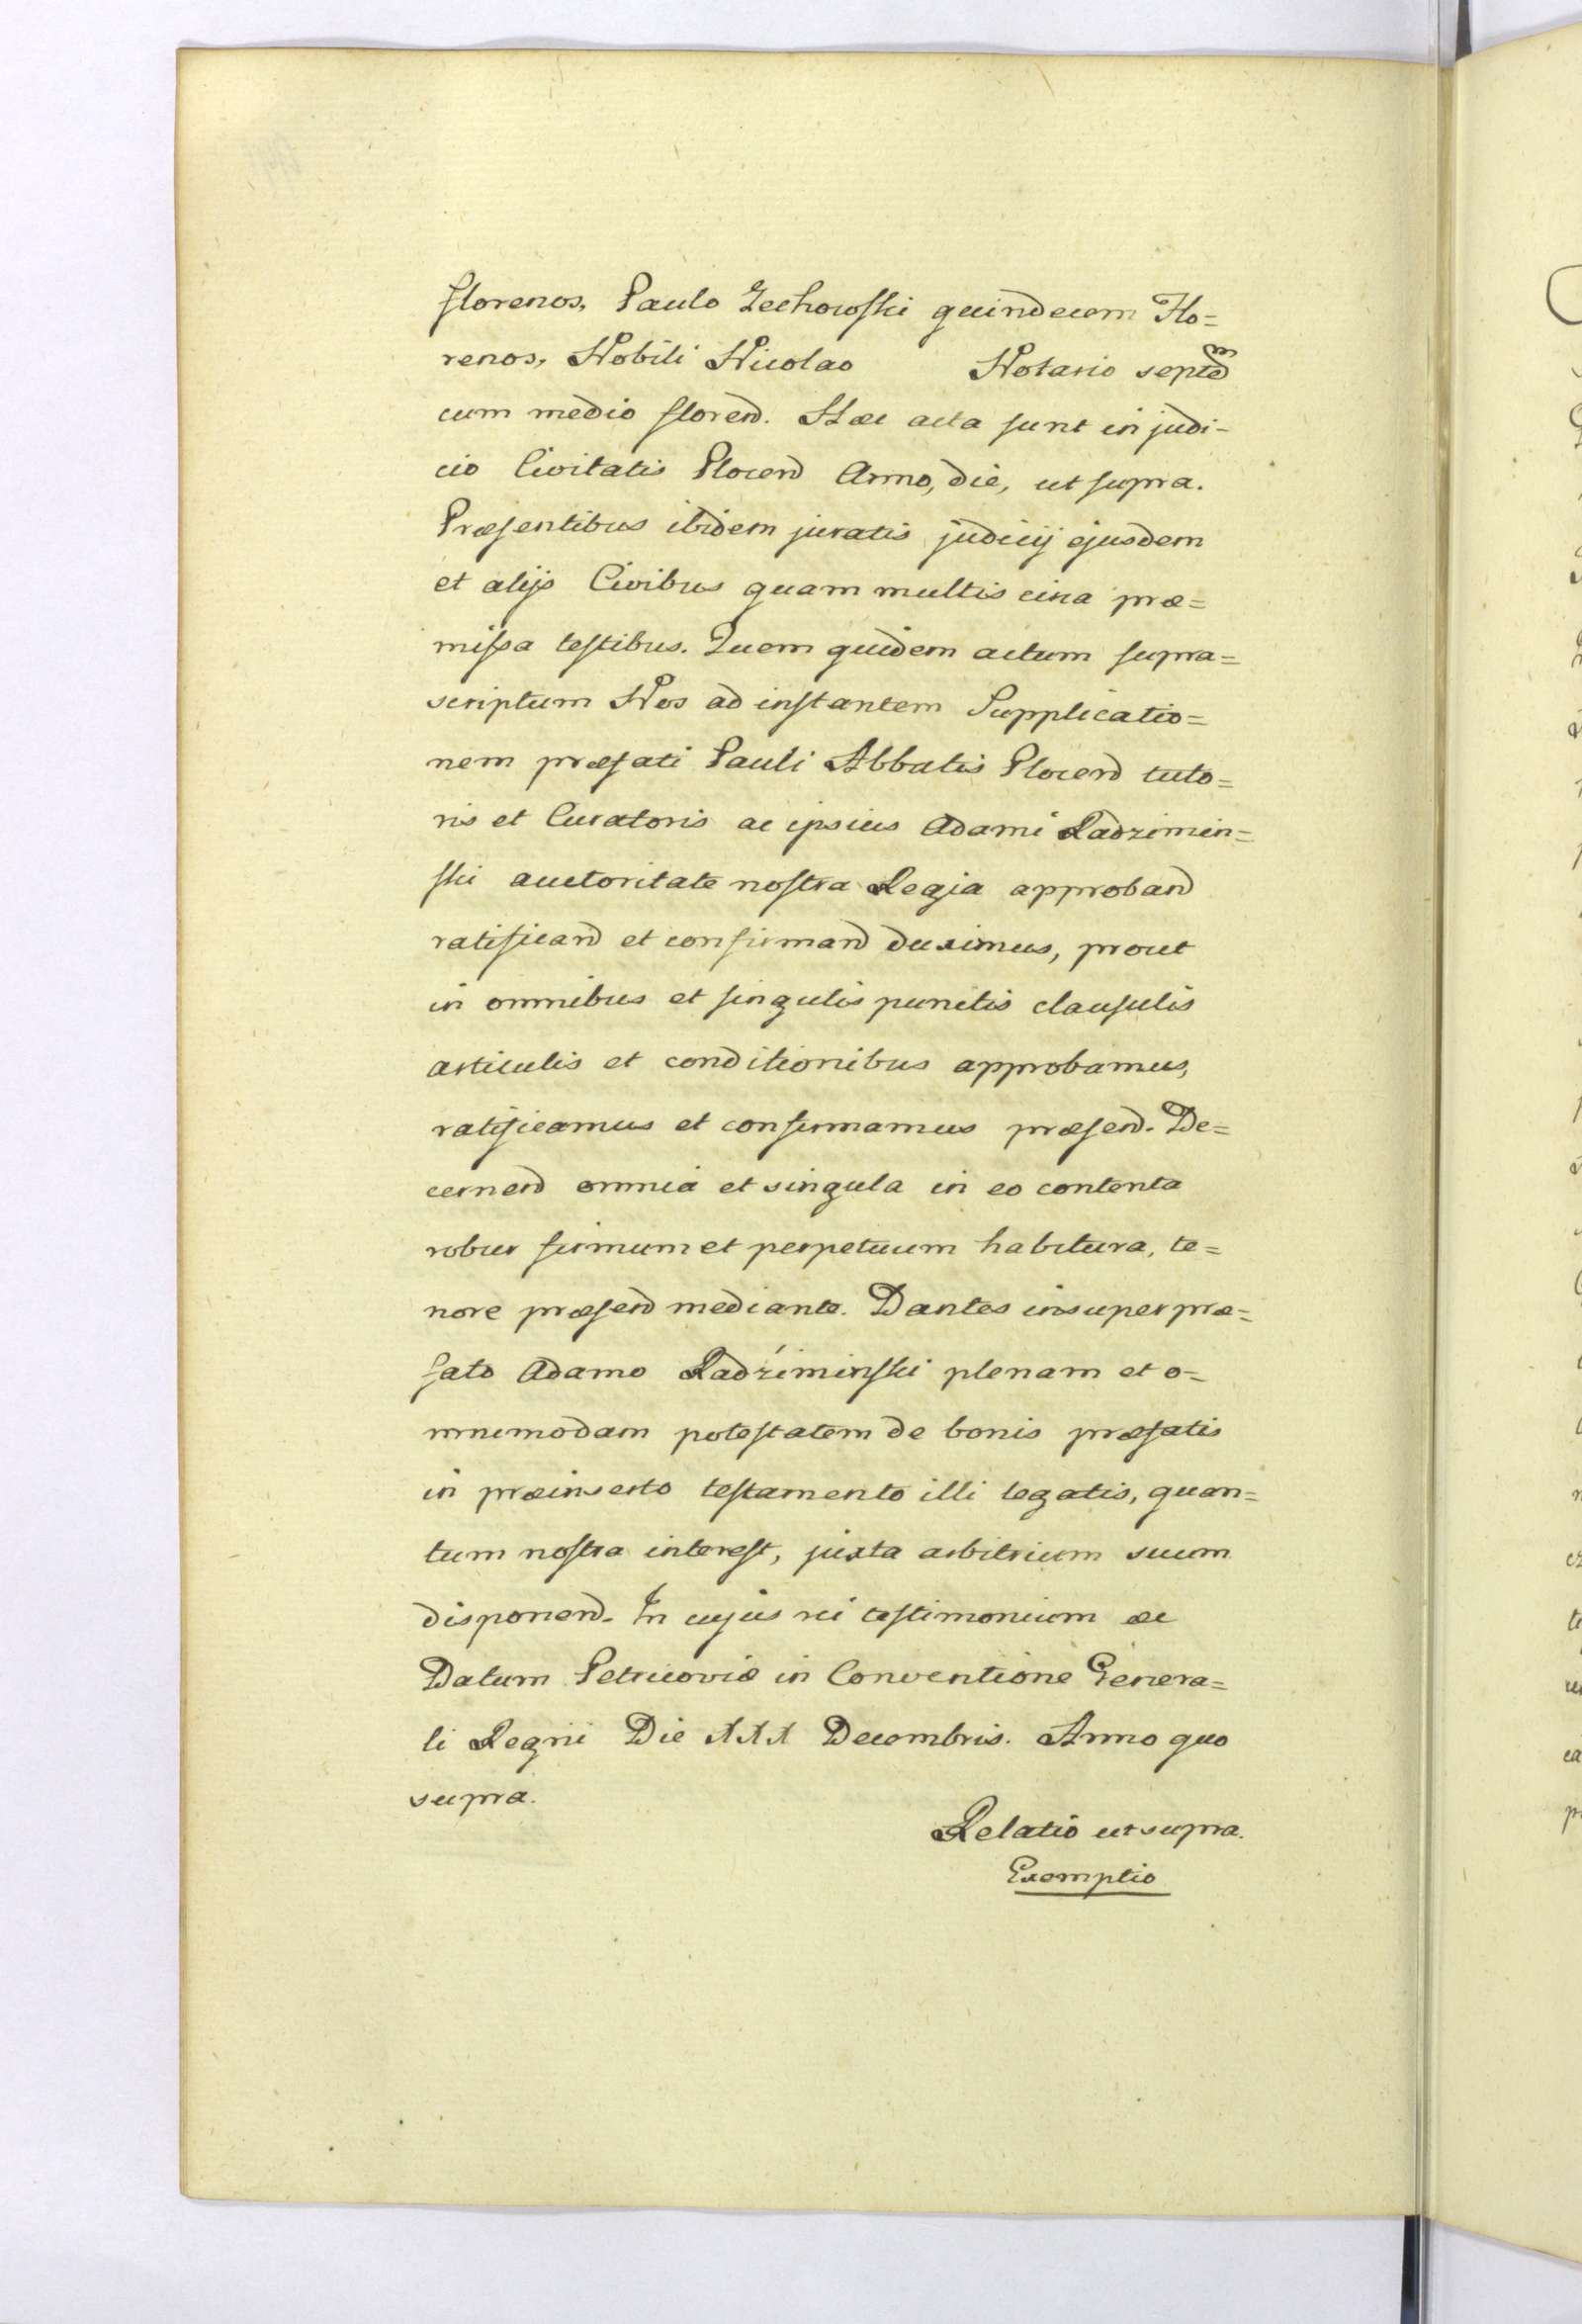 florenos, Paulo Zechowski quindecem Flo=
renos, Nobili Nicolao Notario septem
cum medio floren. Hæc acta sunt in judi-
cio Civitatis Plocen Anno, die, ut supra.
Præsentibus ibidem juratis judicij ejusdem
et alijs Civibus quam multis circa præ=
missa testibus. Quem quidem actum supra=
scriptum Nos ad instantem Supplicatio=
nem præfati Pauli Abbatis Plocen tuto=
ris et Curatoris ac ipsius Adami Radzimin=
ski auctoritate nostra Regia approband
ratificand et confirmand duximus, prout
in omnibus et singulis punctis clausulis
articulis et conditionibus approbamus,
ratificamus et confirmamus præsen. De=
cernen omnia et singula in eo contenta
robur firmum et perpetuum habitura, te=
nore præsen mediante. Dantes insuper præ=
fato Adamo Radźiminski plenam et o=
mnemodam potestatem de bonis præfatis
in præinserto testamento illi legatis, quan=
tum nostra interest, juxta arbitrium suum
disponend. In cujus rei testimonium &c
Datum Petricoviæ in Conventione Genera=
li Regni Die XXX Decembris. Anno quo
supra.
Relatio ut supra.
Exemptio